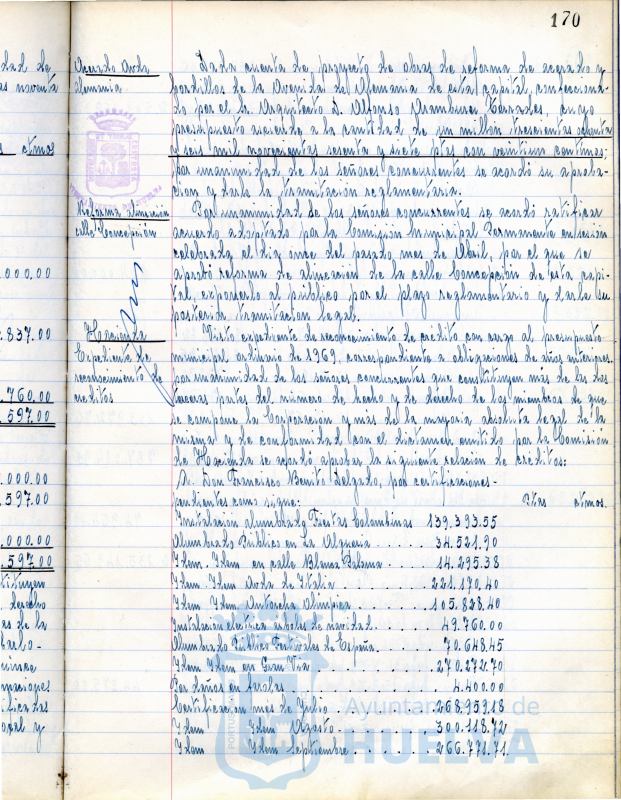 170
dad de
as noventa
s ctmos
.000.00
.837.00
.760.00
.597.00
.000.00
.597.00
.000.00
.597.00
tituyen
derecho
as de la
oral y
Acerado Avda
Alemania
Dada cuenta de proyecto de obras de reforma de acerado y
bordillos de la Avenida de Alemania de esta capital, confecciona-
do por el Sr. Arquitecto D. Alfonso Aramburu Terrades, cuyo
presupuesto asciende a la cantidad de un millon trescientas ochenta
y seis mil novecientas sesenta y siete ptas con veintiun centimos;
por unanimidad de los señores concurrentes se acordó su aproba-
cion y darle la tramitación reglamentaria.
Reforma alineación
calle Concepción
Por unanimidad de los señores concurrentes se acordó ratificar
acuerdo adoptado por la Comisión Municipal Permanente en sesión
celebrada el dia once del pasado mes de Abril, por el que se
aprobó reforma de alineacion de la calle Concepción de esta capi-
tal, exponerlo al público por el plazo reglamentario y darle su
posterior tramitacion legal.
Hacienda
Expediente de
reconocimiento de
creditos
Visto expediente de reconocimiento de crédito con cargo al presupuesto
municipal ordinario de 1969, correspondiente a obligaciones de años anteriores,
por unanimidad de los señores concurrentes que constituyen más de las dos
terceras partes del número de hecho y de derecho de los miembros de que
se compone la Corporación y más de la mayoria absoluta legal de la
misma y de conformidad con el dictamen emitido por la Comisión
de Hacienda se acordó aprobar la siguiente relación de créditos:
A Don Francisco Benito Delgado, por certificaciones-
pendientes como sigue: Ptas ctmos.
Instalación alumbrado Fiestas Colombinas 139.393.55
Alumbrado Público en La Alqueria . . . . . 34.521.90
Idem. Idem en calle Blanca Paloma . . . . 14.295.38
Idem Idem Avda de Italia . . . . . . 221.170.40
Idem Idem Antorcha Olimpica . . . . . 105.828.40
Instalación electrica arboles de navidad . . . . 49.760.00
Alumbrado Público Festivales de España . . . . 70.648.45
Idem Idem en Gran Via . . . . . . 270.272.70
Por daños en . . . . . . 4.400.00
Certificación mes de Julio . . . . . . 268.959.18
Idem Idem Agosto . . . . . . 300.118.72
Idem Idem Septiembre . . . . . . 266.771.71
Ayuntamiento de
HUELVA